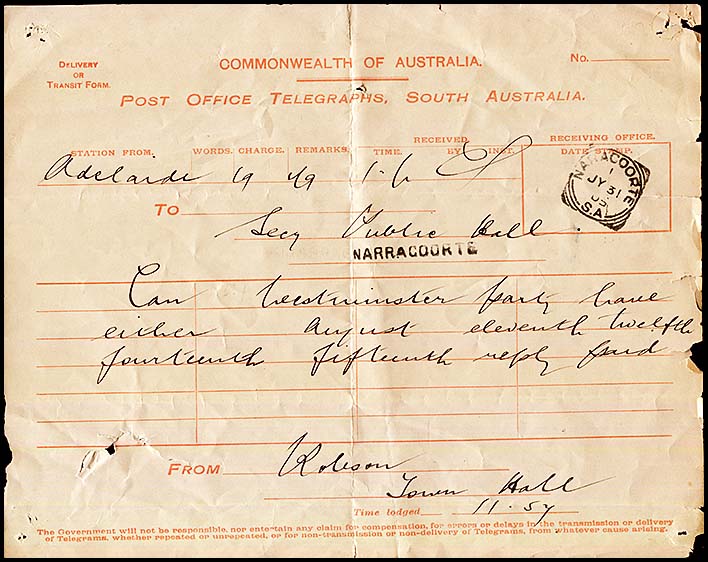 DELIVERY
OR
TRANSIT FORM.
COMMONWEALTH OF AUSTRALIA.
No.
POST OFFICE TELEGRAPHS, SOUTH AUSTRALIA.
STATION FROM. WORDS. CHARGE. REMARKS. TIME. RECEIVED BY INST. RECEIVING OFFICE.
DATE STAMP.
Adelaide 19
NARACOORTE
1
JY 31
05
S.A.
TO Secy Public Hall
NARRACOORTE
Can Westminster party have
either August eleventh twelfth
fourteenth fifteenth reply paid
FROM Robeson
Town Hall
Time lodged 11.57
The Government will not be responsible, nor entertain any claim for compensation, for errors or delays in the transmission or delivery
of Telegrams, whether repeated or unrepeated, or for non-transmission or non-delivery of Telegrams, from whatever cause arising.